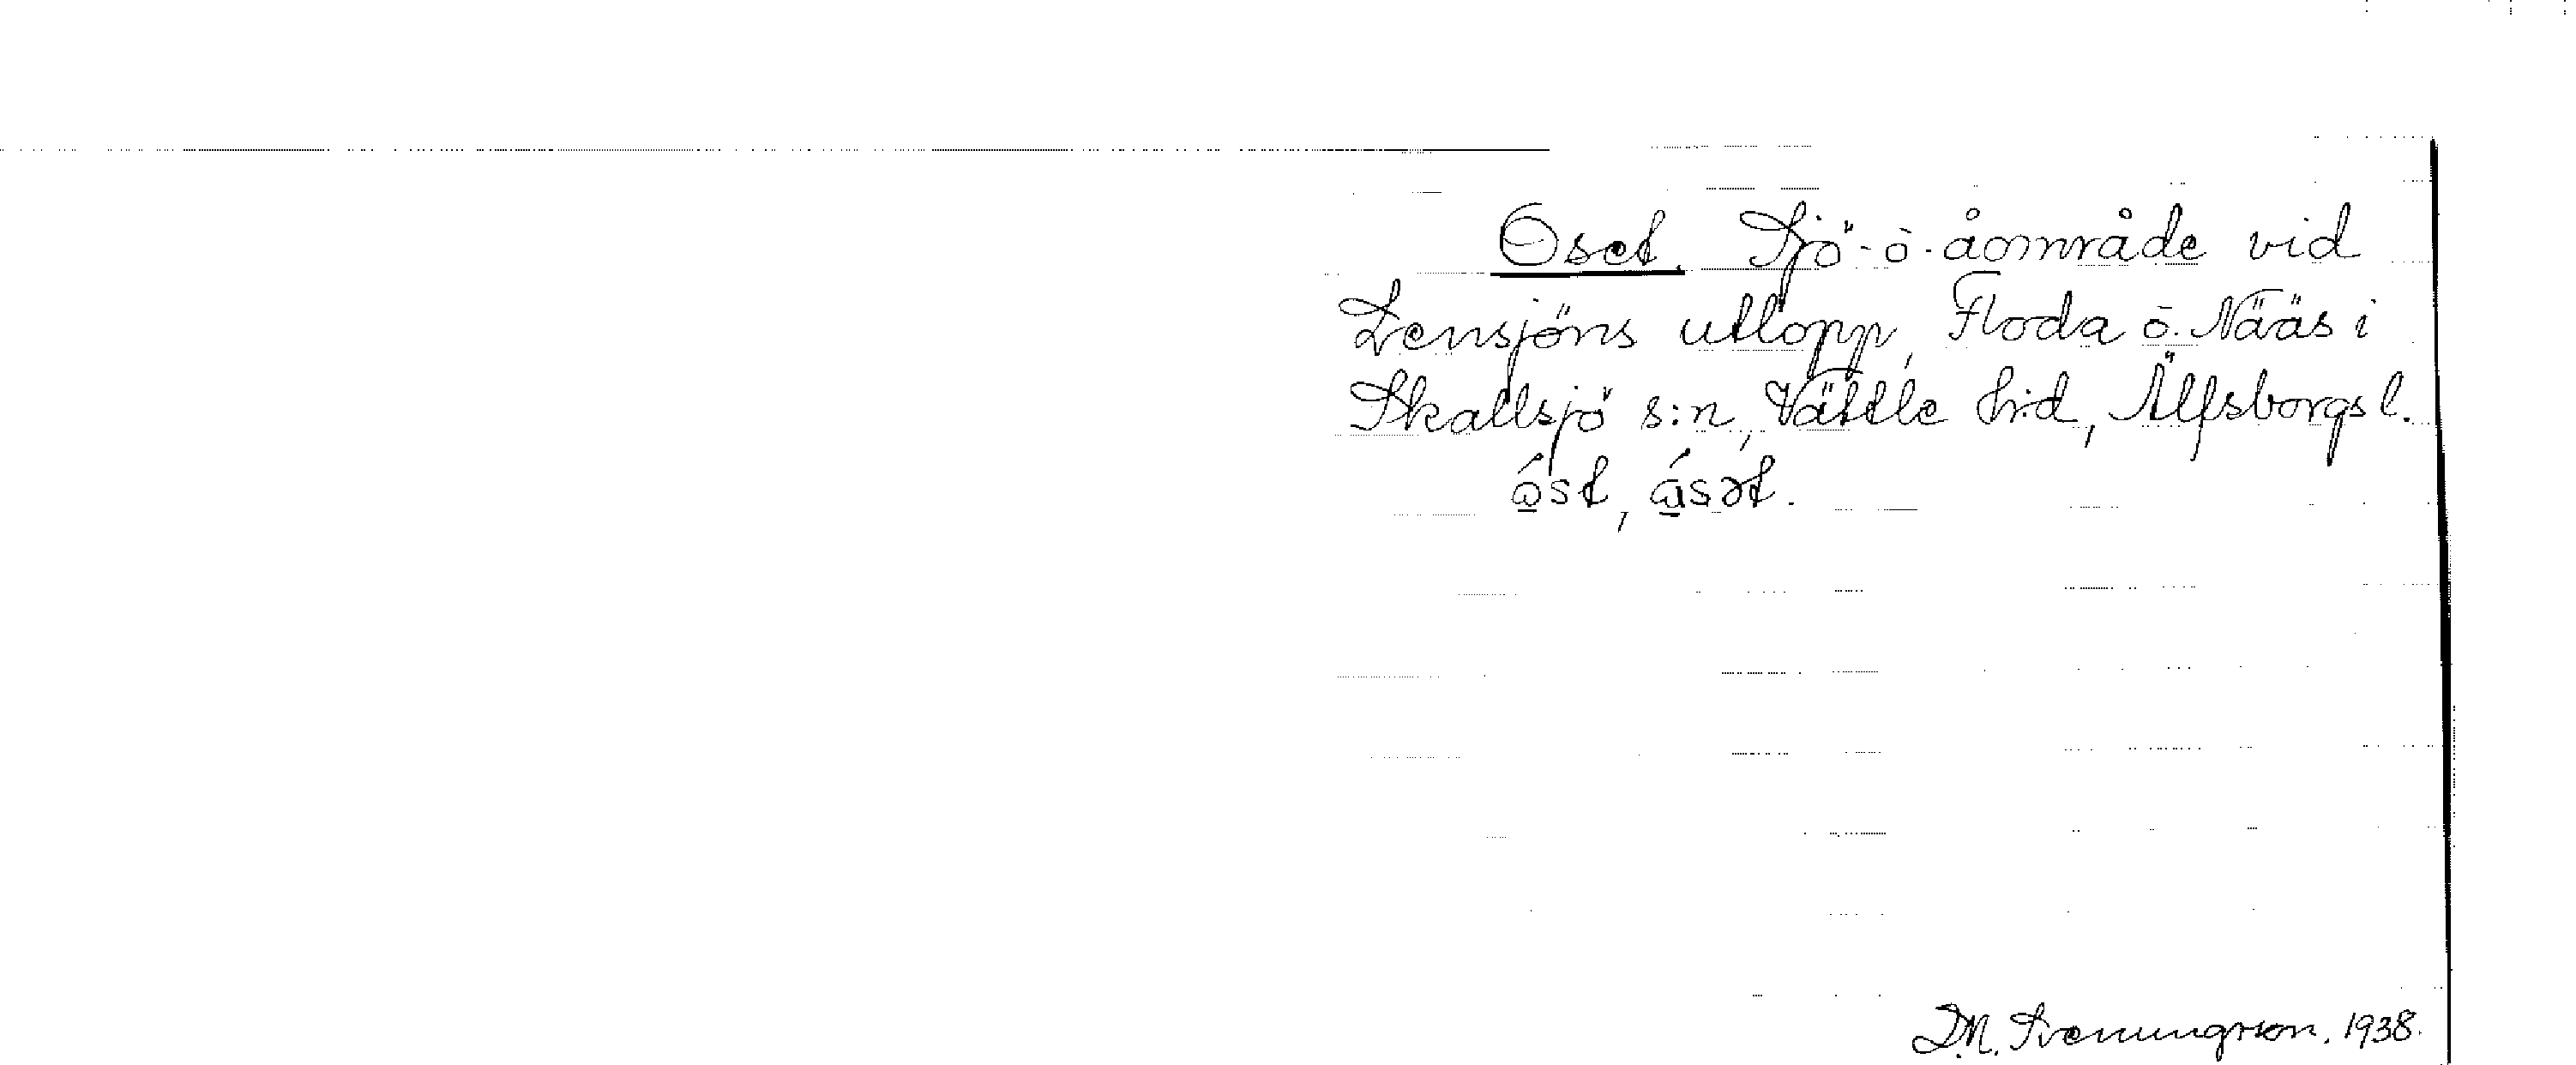 Oset. Sjö- o. åområde vid
Lensjöns utlopp, Floda o. Nääs i
Skallsjö s:n, Vättle hd, Älfsborgs l.
óst, ásət.
D.N. Svenungsson. 1938.